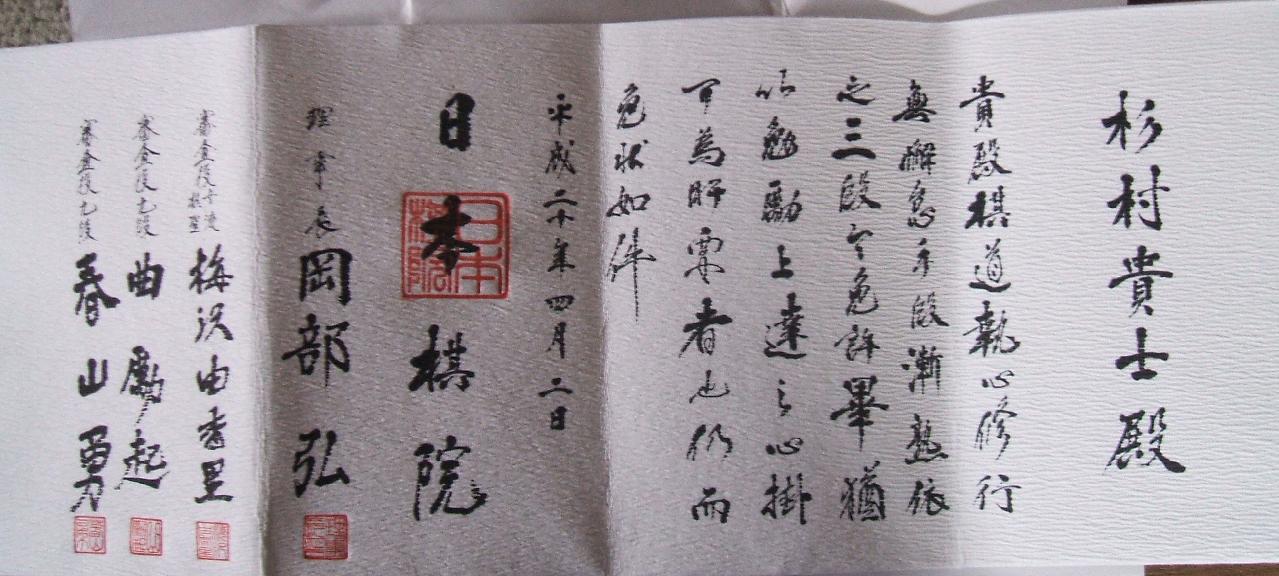 杉村貴士殿
貴殿棋道執心修行
無懈怠手段漸熟依
之三段令免許畢猶
以勉勵上達之心掛
可為肝要者也仍而
免状如件
平成二十年四月二日
日本棋院
日本棋院
理事長 岡部弘
審査役女流棋聖 梅沢由香里
審査役九段 曲勵起
審査役九段 春山勇